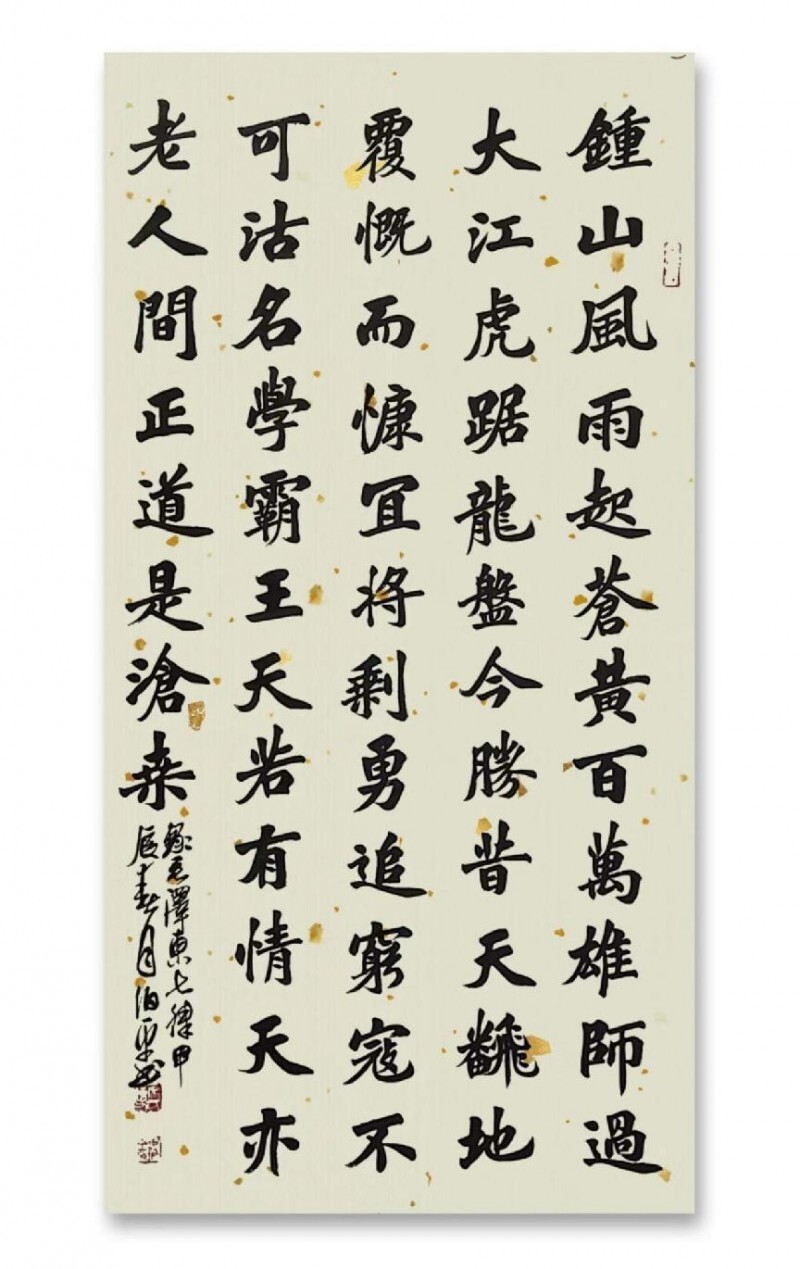 鍾山風雨起蒼黄百萬雄師過
大江虎踞龍盤今勝昔天飜地
覆慨而慷宜将剩勇追窮寇不
可沽名學霸王天若有情天亦
老人間正道是滄桒
録毛澤東七律甲
辰春月伯